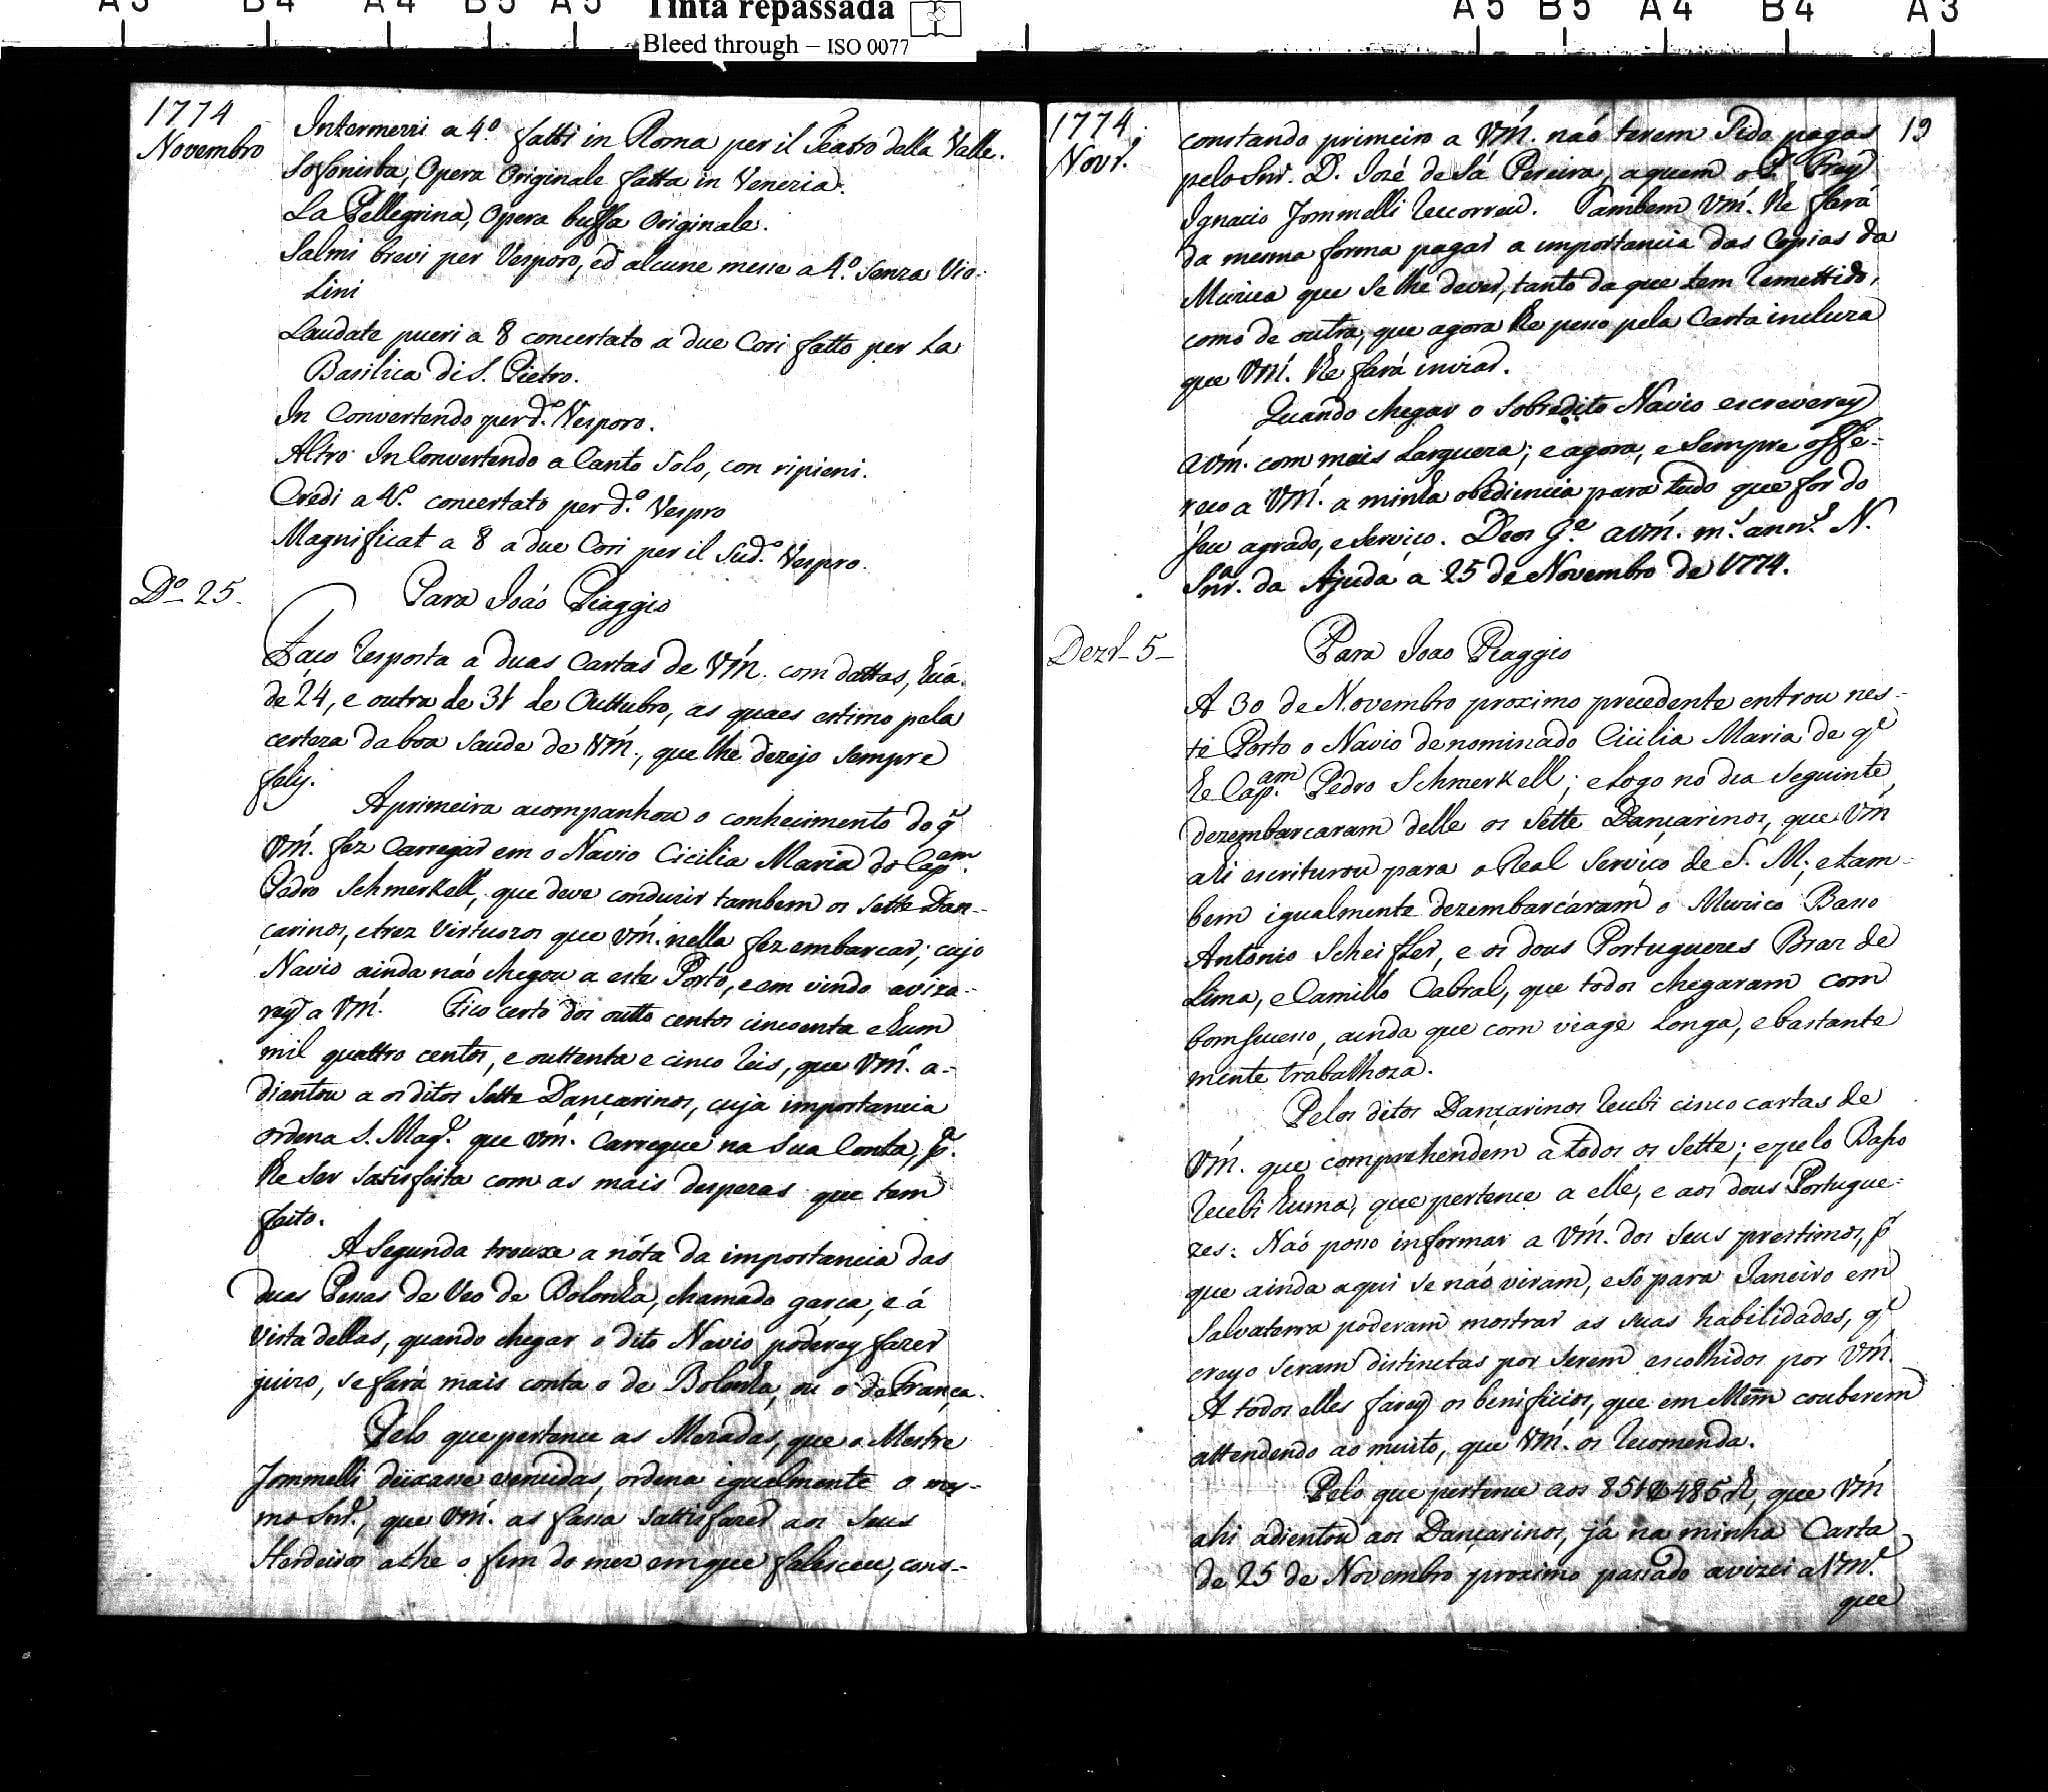 A3 B4 A4 B5 A5 Tinta repassada A5 B5 A4 B4 A3
Bleed through – ISO 0077
1774
Novembro
Intermezzi a 4.º fatti in Roma per il Teatro della Valle.
Sofonisba, Opera Originale fatta in Venezia.
La Pellegrina, Opera buffa Originale.
Salmi brevi per Vesporo, ed alcune messe a 4.º senza Vio-
lini
Laudate pueri a 8 concertato a due Cori fatto per La
Basilica di S. Pietro.
In Convertendo per d.º Vesporo.
Altro In Convertendo a Canto Solo, con ripieni.
Credi a 4.º concertato per d.º Vespro
Magnificat a 8 a due Cori per il Sud.º Vespro.
D.º 25.
Para João Piaggio
Faço resposta a duas Cartas de Vm. com dattas, huã
de 24, e outra de 31 de Outtubro, as quaes estimo pela
certeza da boa saude de Vm., que lhe dezejo sempre
feliz.
A primeira acompanhou o conhecimento do q̃
Vm. fez Carregar em o Navio Cicilia Maria do Cap.am
Pedro Schmerkell, que deve conduzir tambem os sette Dan-
çarinos, e trez Virtuozos que Vm. nella fez embarcar; cujo
Navio ainda não chegou a este Porto, e em vindo aviza-
rey a Vm. Fico certo dos outto centos cincoenta e hum
mil quattro centos, e outtenta e cinco reis, que Vm. a-
diantou a os ditos Sette Dançarinos, cuja importancia
ordena S. Mag.e que Vm. Carregue na sua Conta, p.ª
lhe ser satisfeita com as mais despezas que tem
feito.
A segunda trouxe a nóta da importancia das
duas Pessas de Veo de Bolonha, chamado garça, e á
vista dellas, quando chegar o dito Navio poderey fazer
juizo, se fará mais conta o de Bolonha, ou o de França.
Pelo que pertence as Mezadas, que o Mestre
Jommelli deixasse vencidas, ordena igualmente o mes-
mo Snr., que Vm. as fassa sattisfazer aos seus
Herdeiros athe o fim do mez em que falesceu, cons-
1774
Novr.º
19
constando primeiro a Vm. não terem sido pagas
pelo Snr. D. Jozé de Sá Pereira, a quem o P. Frey
Ignacio Jommelli recorreu. Tambem Vm. lhe fará
da mesma forma pagar a importancia das Copias da
Muzica que se lhe dever, tanto da que tem remettido,
como de outra, que agora lhe pesso pela Carta incluza
que Vm. lhe fará inviar.
Quando chegar o sobredito Navio escreverey
a Vm. com mais Largueza; e agora, e sempre offe-
reço a Vm. a minha obediencia para tudo que for do
seu agrado, e Serviço. Deos g.e a Vm. m.s ann.s N.
Snr.a da Ajuda a 25 de Novembro de 1774.
Dezr.º 5
Para Joao Piaggio
A 30 de Novembro proximo precedente entrou nes-
te Porto o Navio denominado Cicilia Maria de q.e
he Cap.am Pedro Schmerkell; e logo no dia seguinte
dezembarcaram delle os sette Dançarinos, que Vm
ali escriturou para o Real Serviço de S. M.; e tam-
bem igualmente dezembarcáram o Muzico Basso
Antonio Scheiffler, e os dous Portuguezes Braz de
Lima, e Camillo Cabral, que todos chegaram com
bom sucesso, ainda que com viage Longa, e bastante
mente trabalhoza.
Pelos ditos Dançarinos recebi cinco cartas de
Vm. que comprehendem a todos os sette; e pelo Basso
recebi huma, que pertence a elle, e aos dous Portugue-
zes: Não posso informar a Vm. dos seus prestimos, p.r
que ainda aqui se não viram, e só para Janeiro em
Salvaterra poderam mostrar as suas habilidades, q.e
creyo seram distinctas por serem escolhidos por Vm.
A todos elles farey os beneficios, que em Mim couberem
attendendo ao muito, que Vm. os recomenda.
Pelo que pertence aos 851$485 r, que Vm
ahi adientou aos Dançarinos, já na minha Carta
de 25 de Novembro proximo passado avizei a Vm.
que